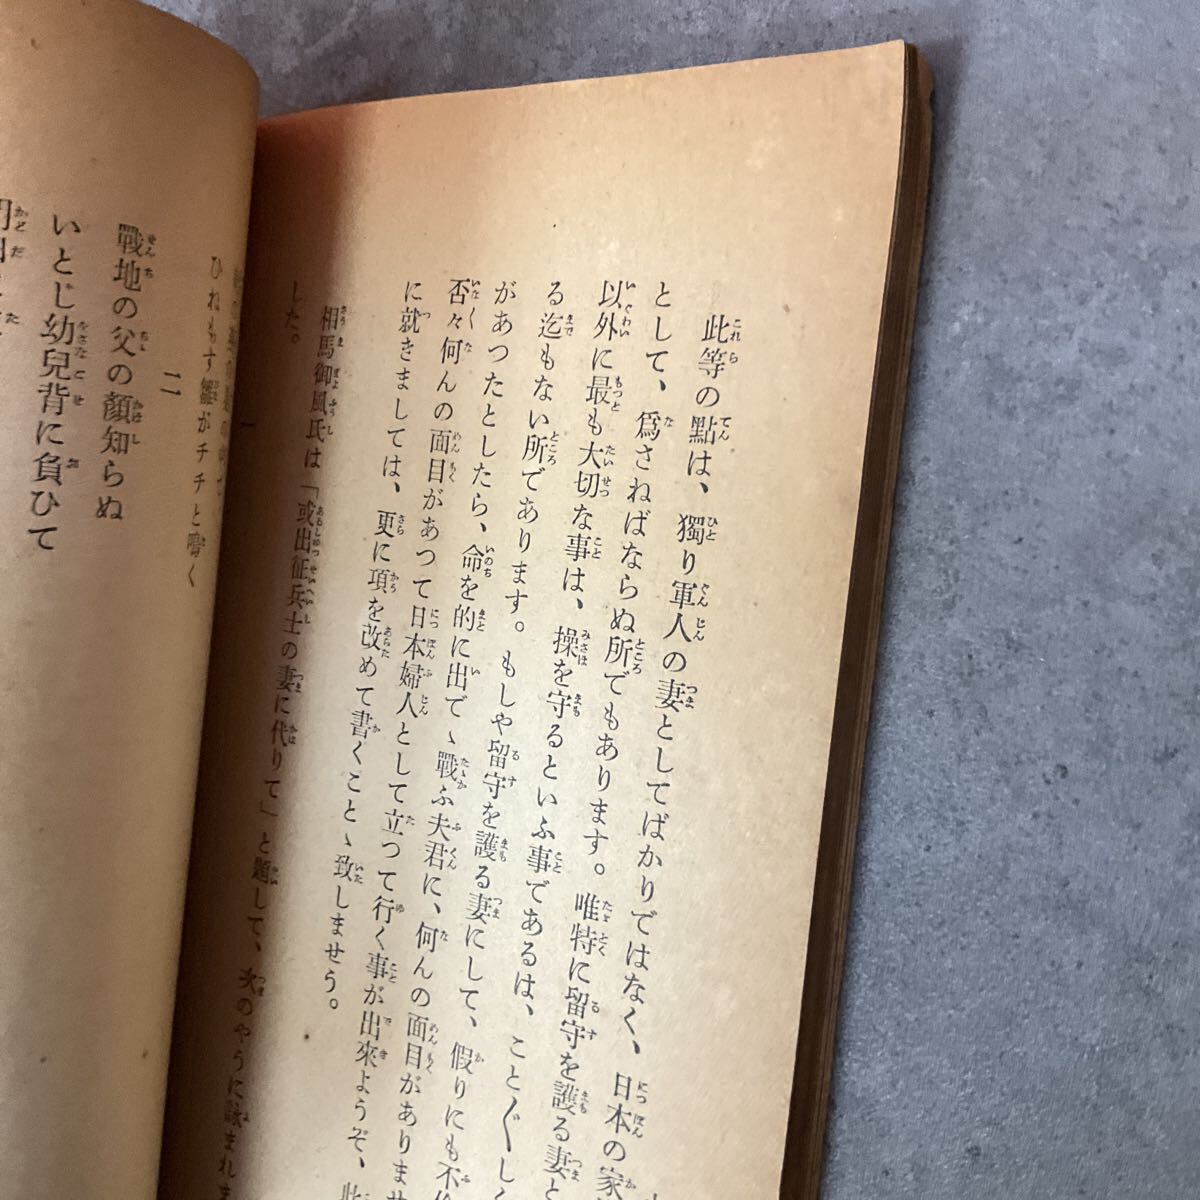 此等の點は、獨り軍人の妻としてばかりではなく、日本の家
として、爲さねばならぬ所でもあります。唯特に留守を護る妻と
以外に最も大切な事は、操を守るといふ事であるは、こと〴〵しく
る迄もない所であります。もしや留守を護る妻にして、假りにも不
があつたとしたら、命を的に出でゝ戰ふ夫君に、何んの面目がありませ
否々何んの面目があつて日本婦人として立つて行く事が出來ようぞ、此
に就きましては、更に項を改めて書くことゝ致しませう。
相馬御風氏は「或出征兵士の妻に代りて」と題して、次のやうに詠まれま
した。
一
ひねもす雛がチチと鳴く
二
戰地の父の顏知らぬ
いとし幼兒背に負ひて